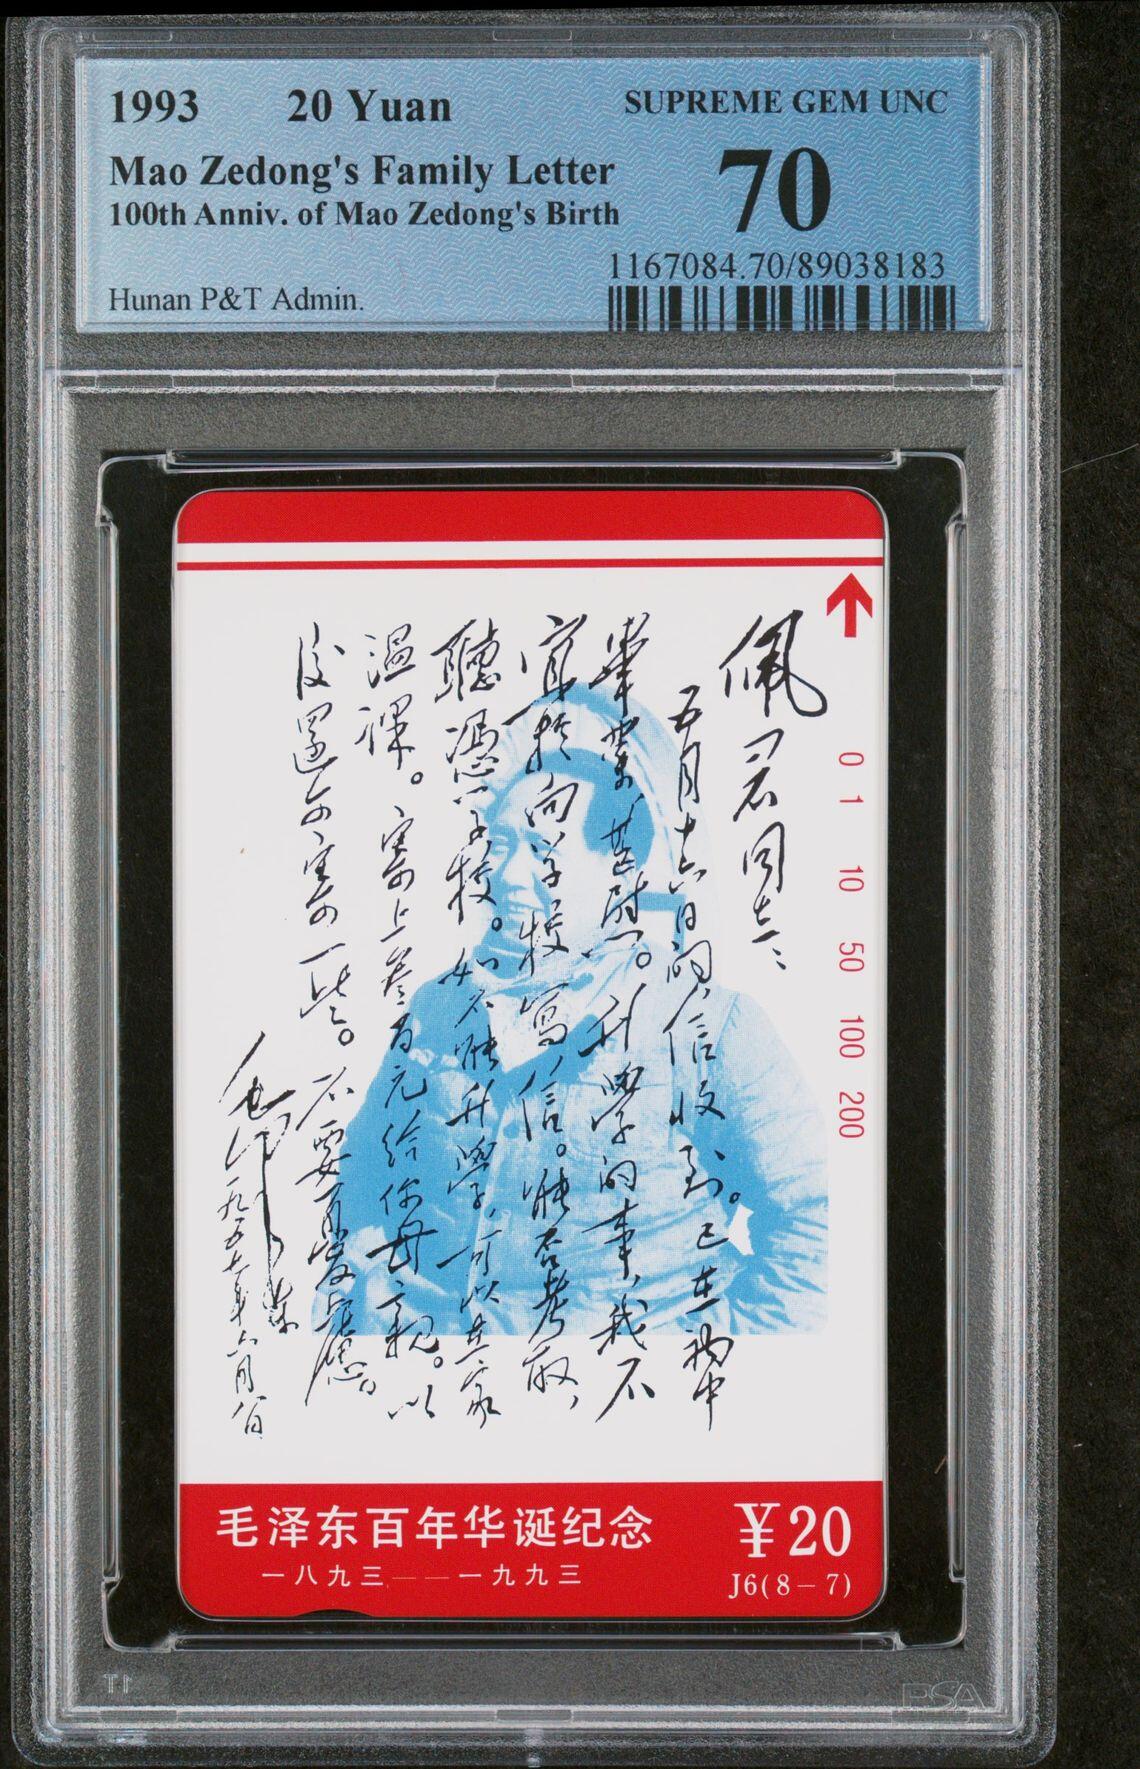 1993 20 Yuan SUPREME GEM UNC
Mao Zedong's Family Letter 70
100th Anniv. of Mao Zedong's Birth
1167084.70/89038183
Hunan P&T Admin.
佩君同志:
五月十六日的信收到。已在初中
畢業,甚慰。升學的事,我不
宜於向學校寫信。能否考取,
聽憑學校。如不能升學,可以在家
溫課。寄上叁百元給你母親。以
後還可寄一些。不要再憂慮。
毛澤東
一九五七年六月八日
0 1 10 50 100 200
毛泽东百年华诞纪念 ¥20
一八九三——一九九三 J6(8－7)
PSA